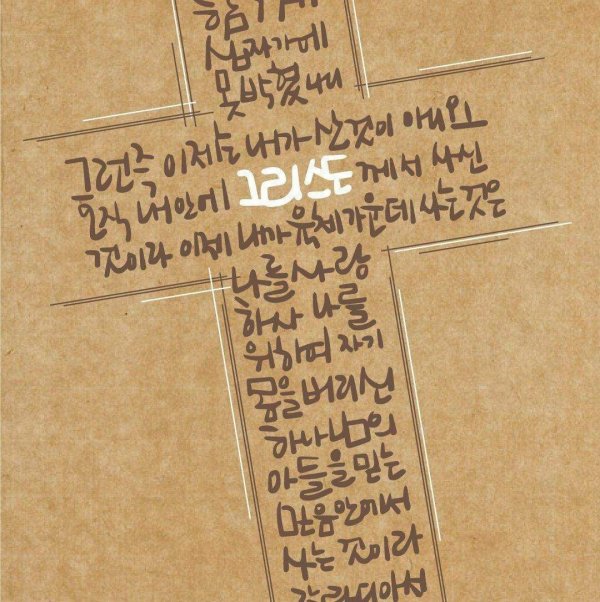 십자가에
못박혔나니
그런즉 이제는 내가 산것이 아니요
오직 내안에 그리스도 께서 사신
것이라 이제 내가 육체가운데 사는것은
나를 사랑
하사 나를
위하여 자기
몸을 버리신
하나님의
아들을 믿는
믿음안에서
사는 것이라
갈라디아서